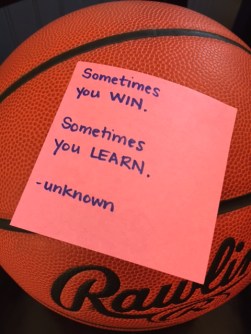 Sometimes
you WIN.
Sometimes
you LEARN.
-unknown